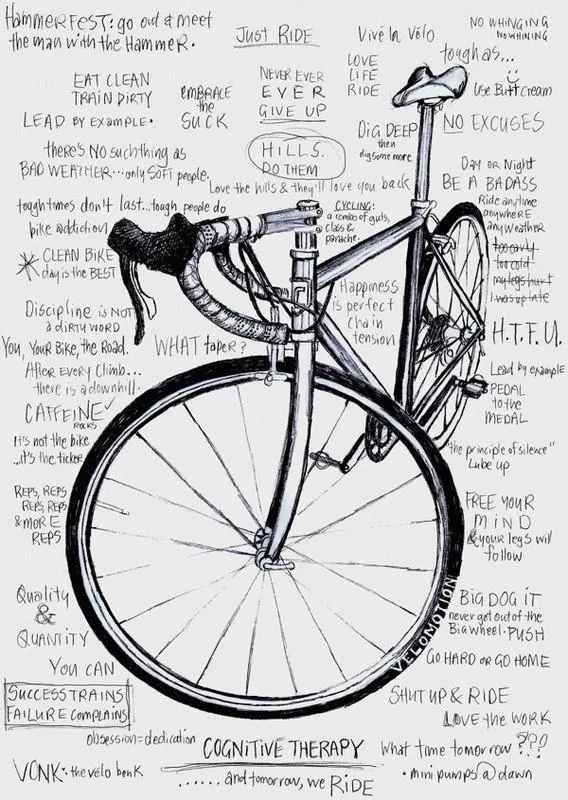 HAMMERFEST: go out & meet
the man with the HAMMER.
JUST RIDE
Vivé la Vélo
NO WHINGING
NO WHINING
EAT CLEAN
TRAIN DIRTY
LEAD BY EXAMPLE.
EMBRACE
the
SUCK
NEVER EVER
EVER
GIVE UP
LOVE
LIFE
RIDE
toughas...
Use Butt Cream
DiG DEEP
then
dig some more
NO EXCUSES
there's NO such thing as
BAD WEATHER...only SOFT people.
HILLS.
DO THEM
Love the hills & they'll love you back
Day or Night
BE A BADASS
Ride anytime
anywhere
any weather
too early
too cold
my legs hurt
I was up late
toughtimes don't last...tough people do
bike addiction
CYCLING:
a combo of guts,
class &
panache.
CLEAN BIKE
day is the BEST
Discipline is NOT
a dirty WORD
Happiness
is perfect
chain
tension
H.T.F.U.
You, Your Bike, the Road.
WHAT taper?
AFTER EVERY Climb...
there is a downhill.
Lead by example
PEDAL
to the
MEDAL
CAFFEINE
ROCKS
It's not the bike
...it's the ticker
"the principle of silence"
Lube up
REPS, REPS
REPS, REPS
& MORE
REPS
FREE YOUR
MIND
& your legs will
follow
Quality
&
QUANTITY
BIG DOG IT
never get out of the
Big wheel. PUSH
VELOMOTION
GO HARD OR GO HOME
YOU CAN
SUCCESS TRAINS
FAILURE COMPLAINS
SHUT UP & RIDE
LOVE the WORK
obsession=dedication
COGNITIVE THERAPY
What time tomorrow???
VONK: the vélo bonk
......and tomorrow, we RIDE
• mini pumps @ dawn